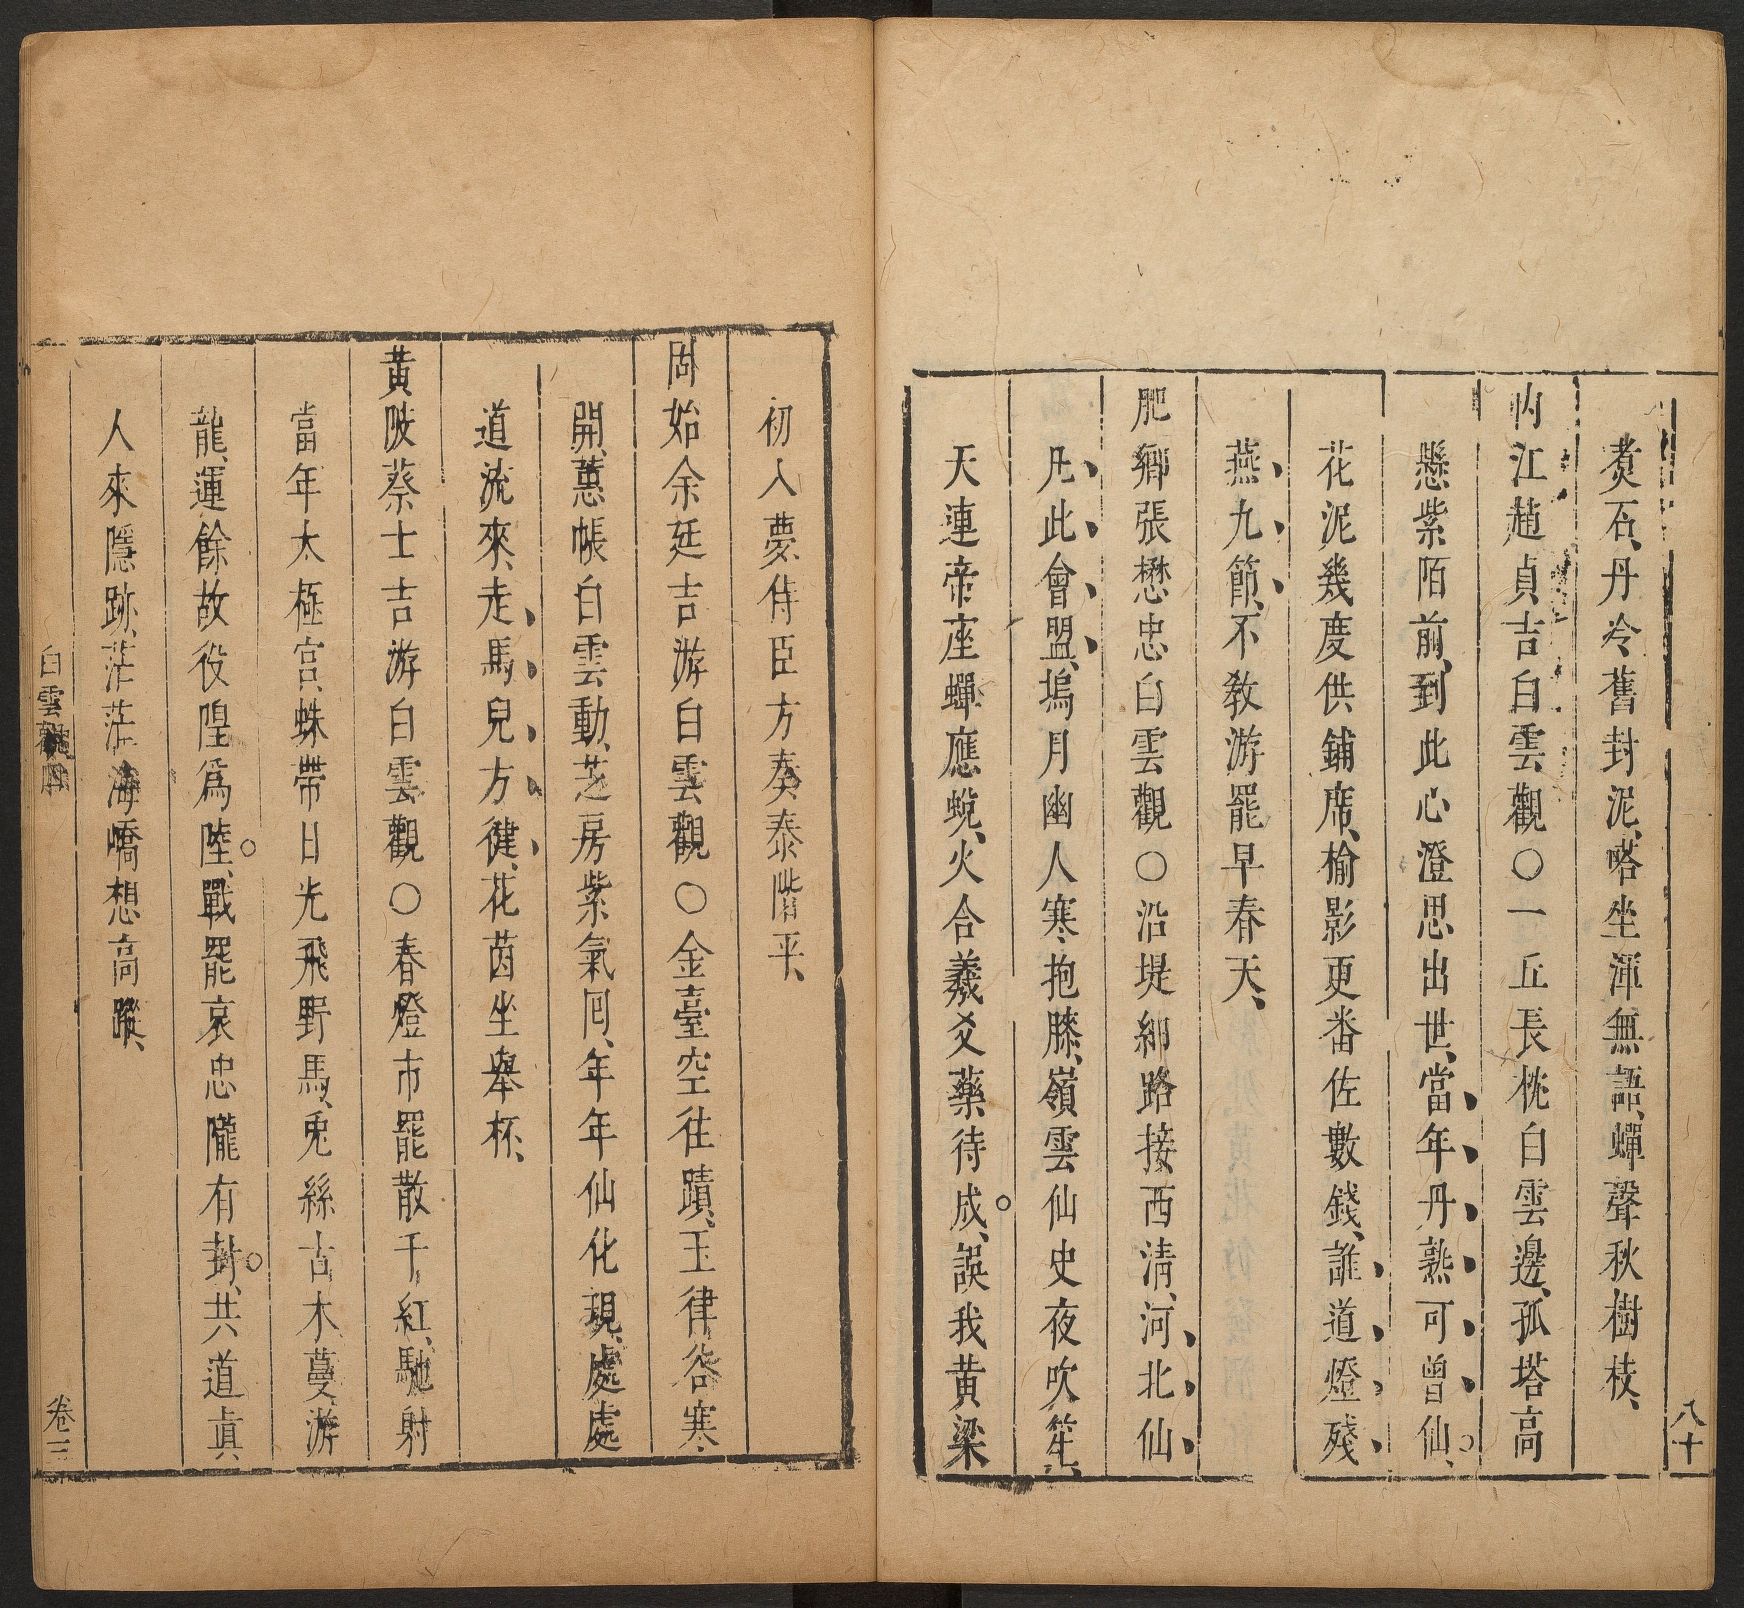 煑石、丹冷舊封泥、嗒坐渾無語、蟬聲秋樹枝、
內江趙貞吉白雲觀○一丘長枕白雲邊、孤塔高
懸紫陌前、到此心澄思出世、當年丹熟可曾仙、
花泥幾度供鋪席、榆影更番佐數錢、誰道燈殘
燕九節、不敎游罷早春天、
肥鄉張懋忠白雲觀○沿堤細路接西淸、河北仙
凡此會盟、塢月幽人寒抱膝、嶺雲仙史夜吹笙、
天連帝座蟬應蛻、火合羲爻藥待成、誤我黃梁
八十
初入夢、侍臣方奏泰階平、
固始余廷吉游白雲觀○金臺空往蹟、玉律咨寒
開、蕙帳白雲動、芝房紫氣囘、年年仙化現、處處
道流來、走馬兒方健、花茵坐舉杯、
黃陂蔡士吉游白雲觀○春燈市罷散千紅、馳射
當年太極宮、蛛帶日光飛野馬、兎絲古木蔓游
龍、運餘故役隍爲陸、戰罷哀忠隴有封、共道眞
人來隱跡、茫茫海嶠想高蹤、
白雲觀
卷三